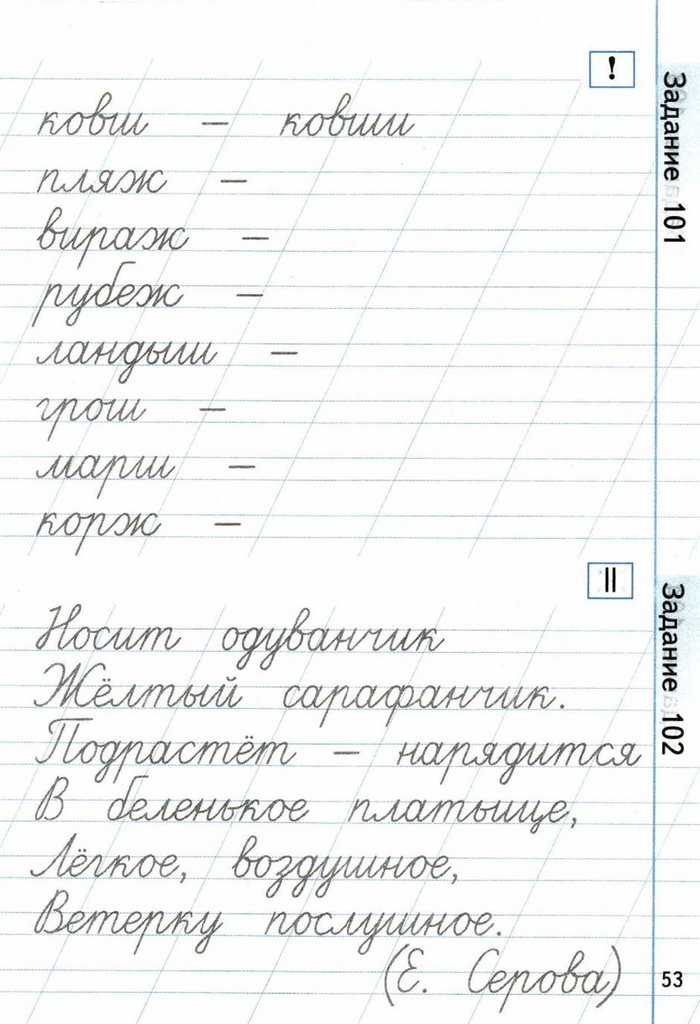 !
Задание 101
ковш – ковши
пляж –
вираж –
рубеж –
ландыш –
грош –
марш –
корж –
||
Задание 102
Носит одуванчик
Жёлтый сарафанчик.
Подрастёт – нарядится
В беленькое платьице,
Лёгкое, воздушное,
Ветерку послушное.
(Е. Серова)
53